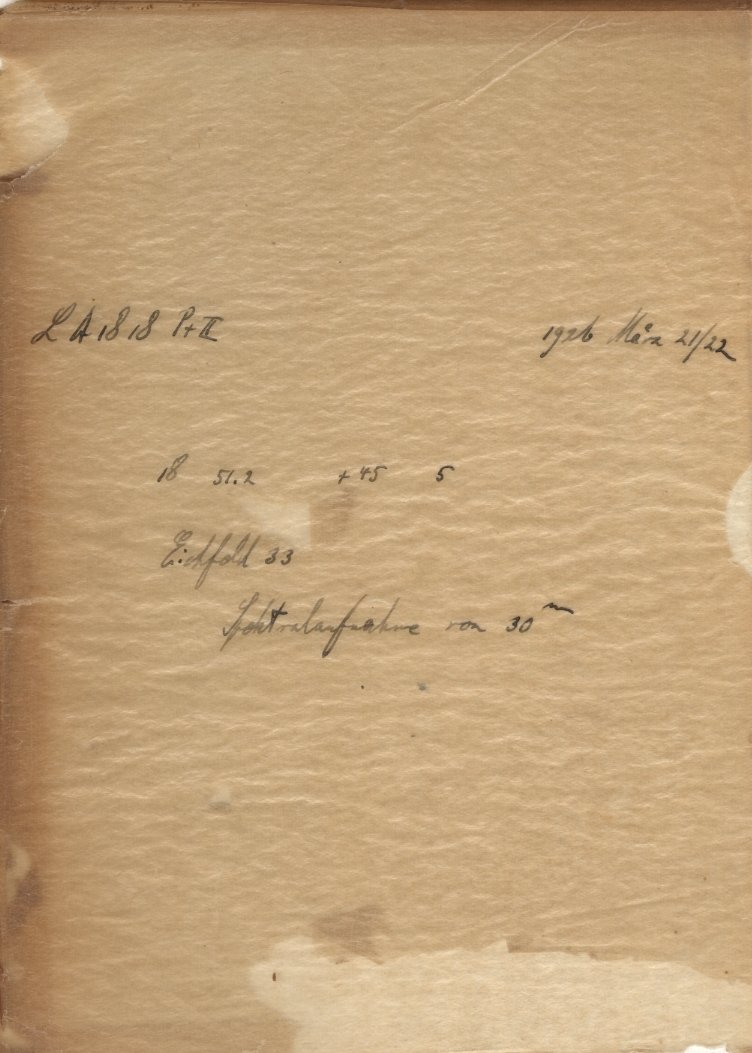 L A 1818 Pr II 1926 März 21/22
18 51.2 +45 5
Eichfeld 33
Spektralaufnahme von 30ᵐ